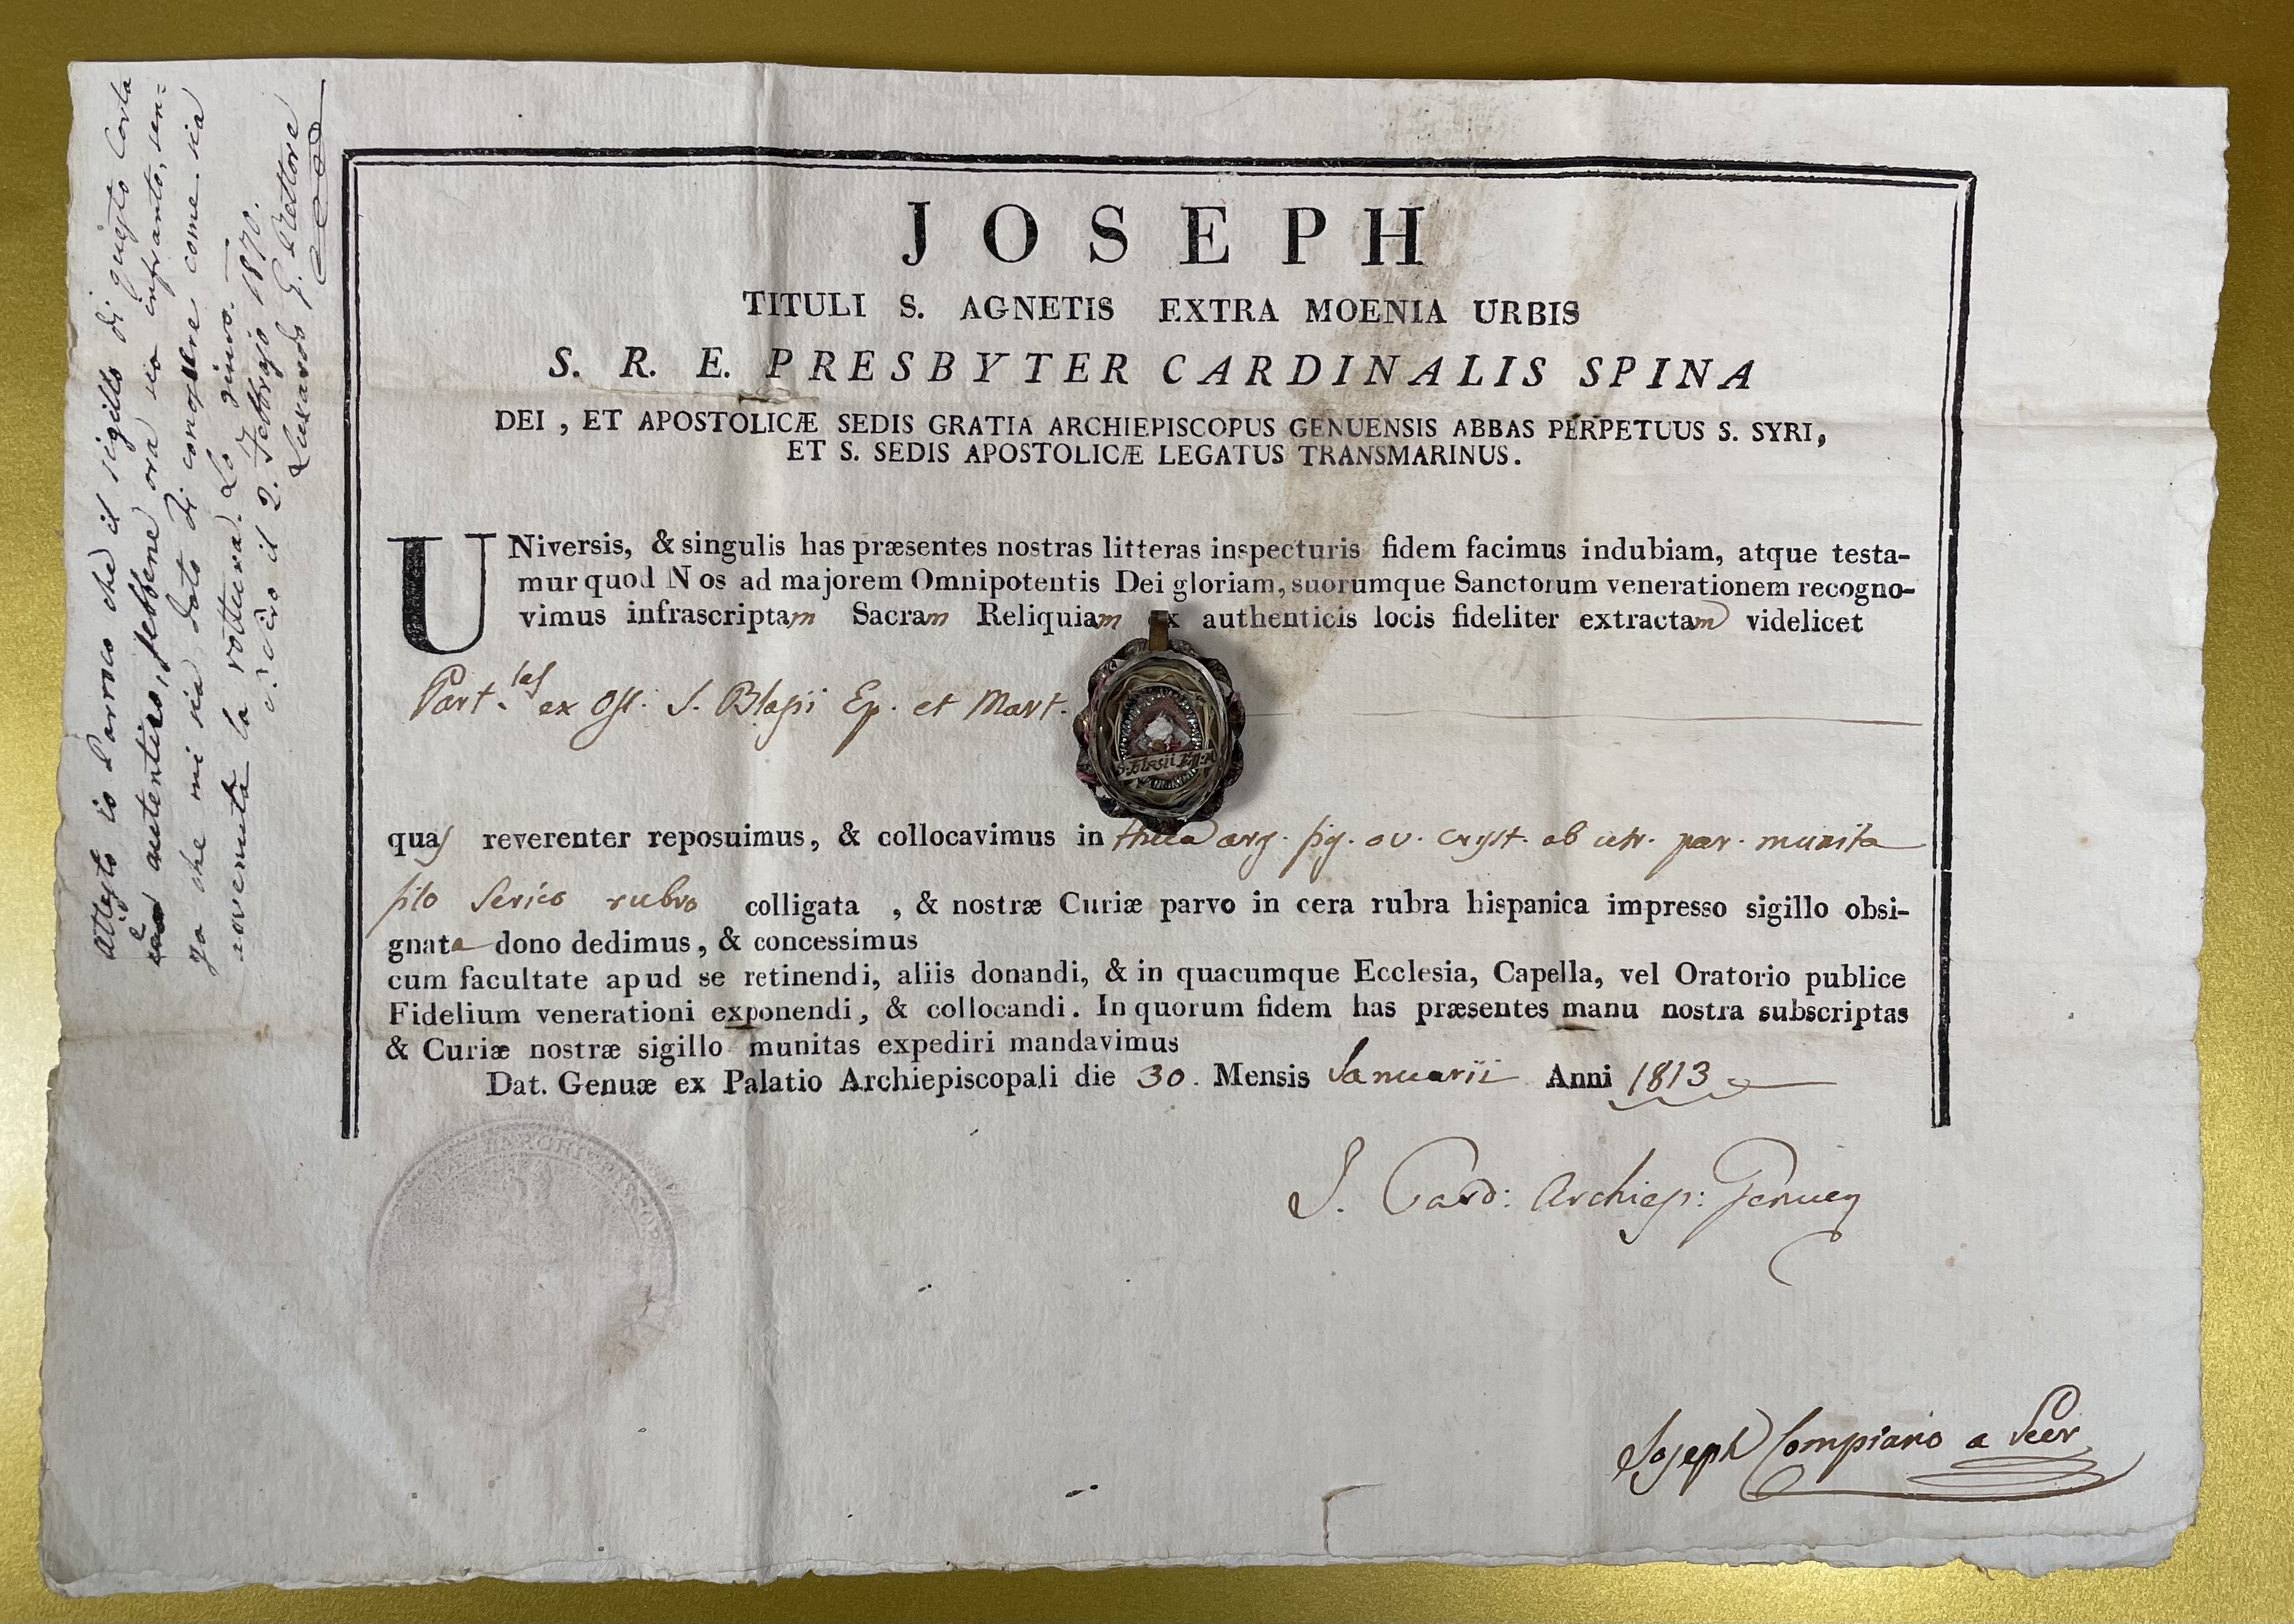 JOSEPH
TITULI S. AGNETIS EXTRA MOENIA URBIS
S. R. E. PRESBYTER CARDINALIS SPINA
DEI , ET APOSTOLICÆ SEDIS GRATIA ARCHIEPISCOPUS GENUENSIS ABBAS PERPETUUS S. SYRI,
ET S. SEDIS APOSTOLICÆ LEGATUS TRANSMARINUS.
UNiversis, & singulis has præsentes nostras litteras inspecturis fidem facimus indubiam, atque testa-
mur quod Nos ad majorem Omnipotentis Dei gloriam, suorumque Sanctorum venerationem recogno-
vimus infrascriptam Sacram Reliquiam ex authenticis locis fideliter extractam videlicet
Part.las ex Oss. S. Blasii Ep. et Mart.
S. Blasii
quas reverenter reposuimus, & collocavimus in theca arg. fig. ov. cryst. ab utr. par. munita
filo serico rubro colligata , & nostræ Curiæ parvo in cera rubra hispanica impresso sigillo obsi-
gnata dono dedimus, & concessimus
cum facultate apud se retinendi, aliis donandi, & in quacumque Ecclesia, Capella, vel Oratorio publice
Fidelium venerationi exponendi, & collocandi. In quorum fidem has præsentes manu nostra subscriptas
& Curiæ nostræ sigillo munitas expediri mandavimus
Dat. Genuæ ex Palatio Archiepiscopali die 30. Mensis Januarii Anni 1813
J. Card: Archiep: Genuen
Joseph Compiano a Secr
attesto io Parroco che il sigillo di questa Carta
è autentico, sebbene ora sia infranto, sen=
za che mi sia dato di conoscere come sia
avvenuta la rottura. Lo
il 2. Febbrajo 1870.
Luxardo G. Rettore